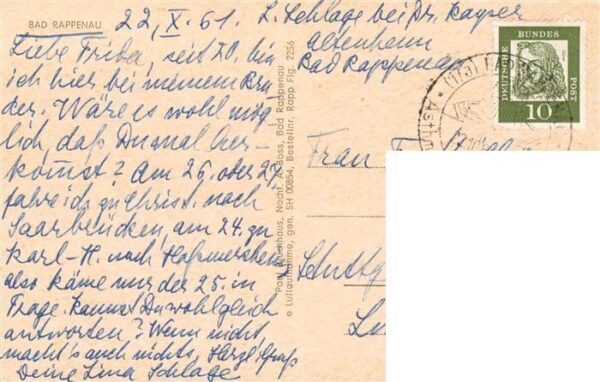 BAD RAPPENAU
22. X. 61. L. Schlage bei Dr. Kayser
Altenheim
Bad Rappenau
Liebe Frida, seit 20. bin
ich hier bei meinem Bru
der. Wäre es wohl mög
lich, daß Du mal her-
kämst? Am 26. oder 27.
fahre ich zu Christ. nach
Saarbrücken, am 24. zu
Karl-H. nach Haßmersheim
also käme nur der 25. in
Frage. Kannst Du wohl gleich
antworten? Wenn nicht,
macht's auch nichts, Herzl. Gruß
Deine Lina Schlage
Paul Burkhaus, Nachf. A. Boss, Bad Rappenau
e Luftaufnahme, gen. SH 00854, Bestellnr. Rapp Flg. 2256
DEUTSCHE
BUNDES
POST
10
Frau
Stuttg